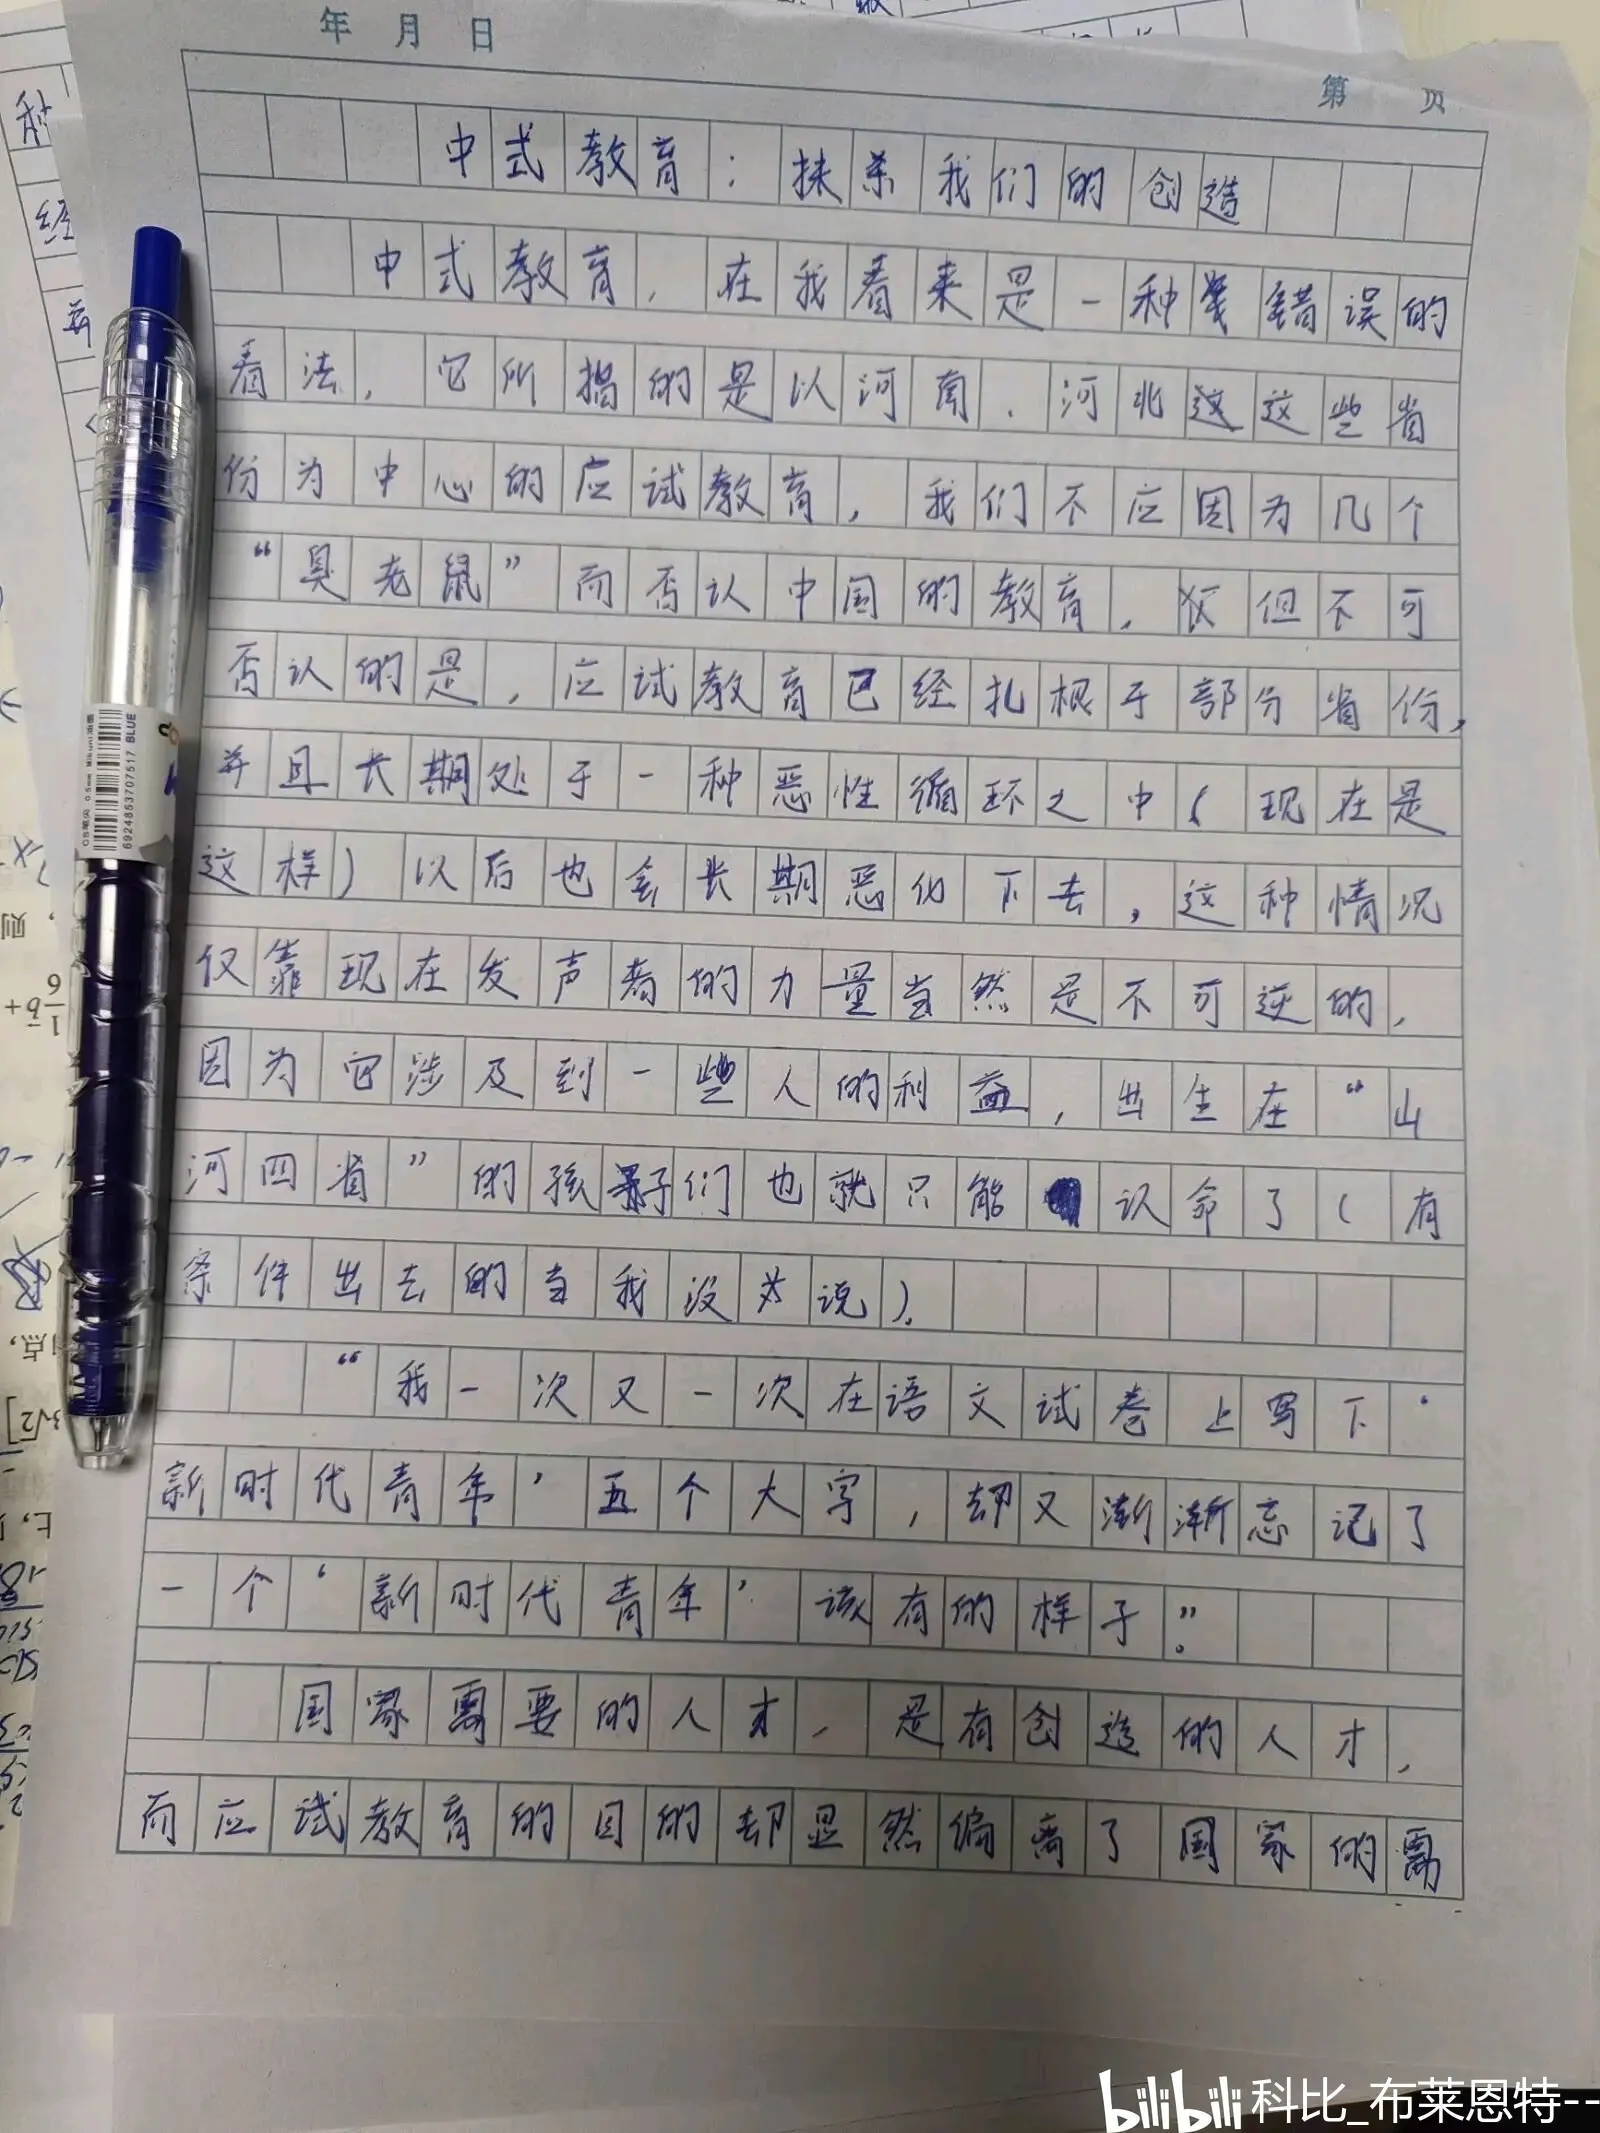 年 月 日
第 页
中式教育：抹杀我们的创造
中式教育，在我看来是一种错误的
看法，它所指的是以河南、河北这这些省
份为中心的应试教育，我们不应因为几个
“臭老鼠”而否认中国的教育，但不可
否认的是，应试教育已经扎根于部分省份，
并且长期处于一种恶性循环之中（现在是
这样）以后也会长期恶化下去，这种情况
仅靠现在发声者的力量当然是不可逆的，
因为它涉及到一些人的利益，出生在“山
河四省”的孩子们也就只能认命了（有
条件出去的当我没说）．
“我一次又一次在语文试卷上写下‘
新时代青年’五个大字，却又渐渐忘记了
一个‘新时代青年’该有的样子”．
国家需要的人才，是有创造的人才，
而应试教育的目的却显然偏离了国家的需
CS笔尖 0.5mm
6924853707517 BLUE
种
经
则
点，
bilibili 科比_布莱恩特--